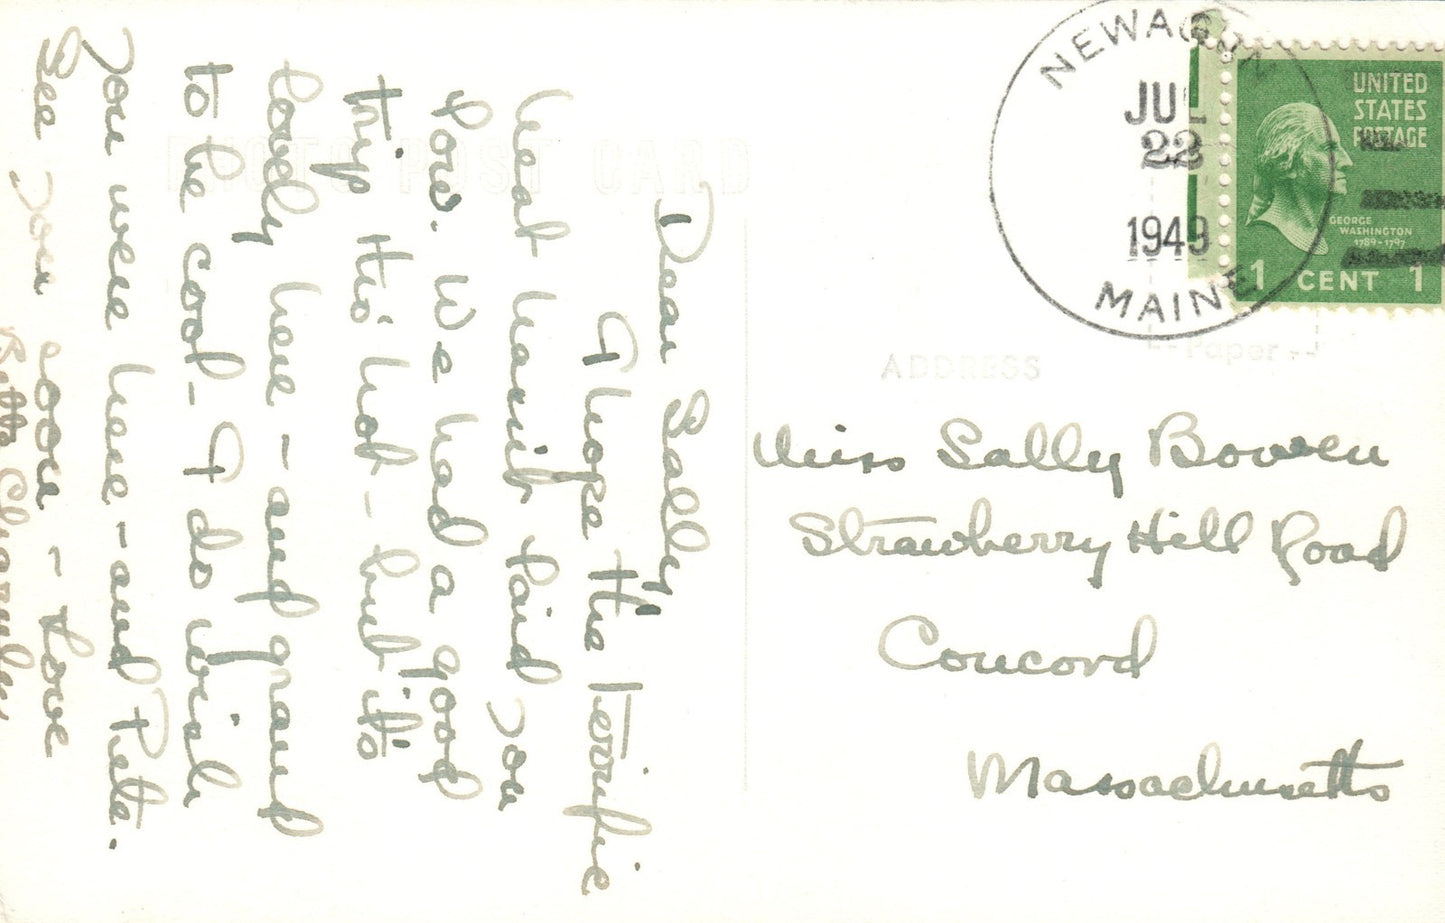 PHOTO POST CARD
Dear Sally
I hope the terrific
heat hasn't laid you
low. We had a good
trip tho' hot - but it's
lovely here - and grand
to be cool - I do wish
you were here - and Pete.
See you soon - Love
NEWAGEN
JUL
22
1949
MAINE
UNITED
STATES
POSTAGE
GEORGE
WASHINGTON
1789-1797
1 CENT 1
Paper
ADDRESS
Miss Sally Bowen
Strawberry Hill Road
Concord
Massachusetts